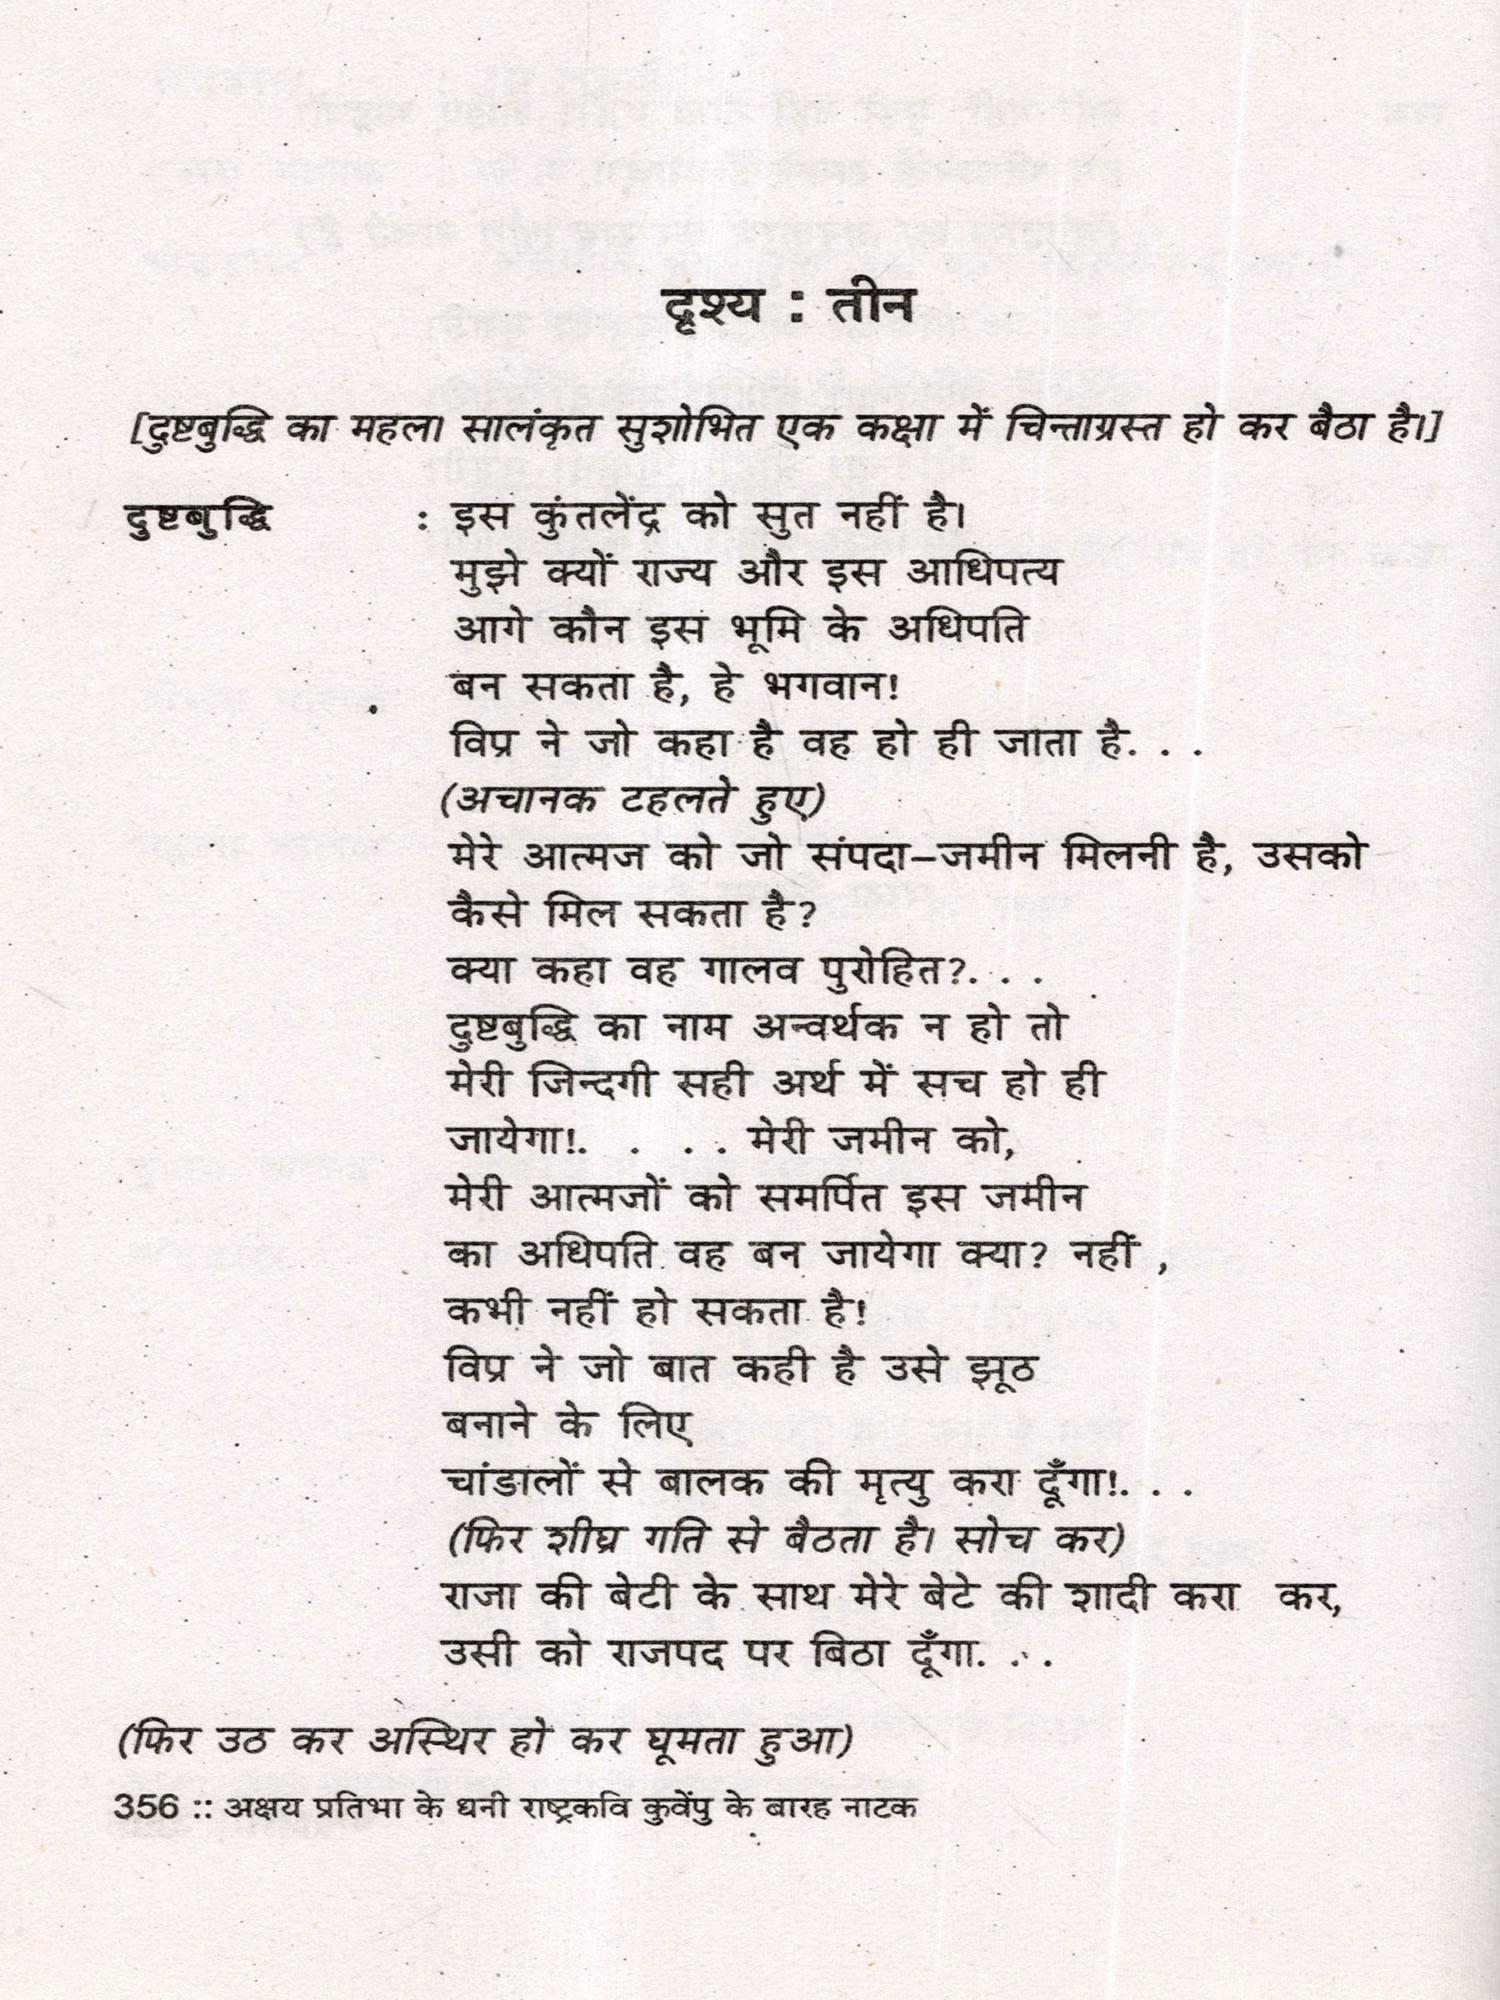 दृश्य : तीन
[दुष्टबुद्धि का महल। सालंकृत सुशोभित एक कक्षा में चिन्ताग्रस्त हो कर बैठा है।]
दुष्टबुद्धि : इस कुंतलेंद्र को सुत नहीं है।
मुझे क्यों राज्य और इस आधिपत्य
आगे कौन इस भूमि के अधिपति
बन सकता है, हे भगवान!
विप्र ने जो कहा है वह हो ही जाता है. . .
(अचानक टहलते हुए)
मेरे आत्मज को जो संपदा–जमीन मिलनी है, उसको
कैसे मिल सकता है?
क्या कहा वह गालव पुरोहित?. . .
दुष्टबुद्धि का नाम अन्वर्थक न हो तो
मेरी जिन्दगी सही अर्थ में सच हो ही
जायेगा!. . . . मेरी जमीन को,
मेरी आत्मजों को समर्पित इस जमीन
का अधिपति वह बन जायेगा क्या? नहीं ,
कभी नहीं हो सकता है!
विप्र ने जो बात कही है उसे झूठ
बनाने के लिए
चांडालों से बालक की मृत्यु करा दूँगा!. . .
(फिर शीघ्र गति से बैठता है। सोच कर)
राजा की बेटी के साथ मेरे बेटे की शादी करा कर,
उसी को राजपद पर बिठा दूँगा. . .
(फिर उठ कर अस्थिर हो कर घूमता हुआ)
356 :: अक्षय प्रतिभा के धनी राष्ट्रकवि कुवेंपु के बारह नाटक